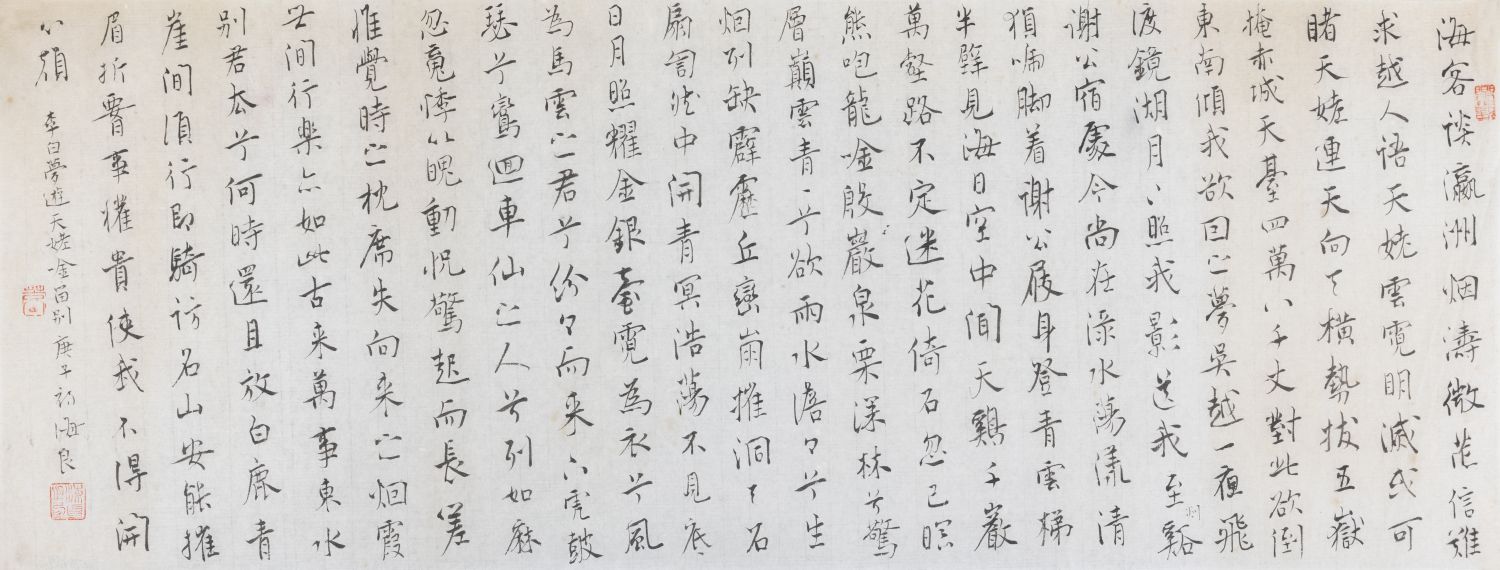 海客谈瀛洲烟濤微茫信難
求越人语天姥雲霓明滅或可
睹天姥連天向天橫勢拔五嶽
掩赤城天臺四萬八千丈對此欲倒
東南傾我欲因之夢吳越一夜飛
渡鏡湖月月照我影送我至剡谿
谢公宿處今尚在渌水蕩漾清
猿啼脚着谢公屐身登青雲梯
半壁見海日空中闻天鷄千巖
萬壑路不定迷花倚石忽已暝
熊咆龍吟殷巖泉栗深林兮驚
層巔雲青青兮欲雨水澹澹兮生
烟列缺霹靂丘巒崩摧洞天石
扇訇然中開青冥浩蕩不見底
日月照耀金銀臺霓為衣兮風
為馬雲之君兮纷纷而来下虎鼓
瑟兮鸞迴車仙之人兮列如麻
忽魂悸以魄動怳驚起而長嗟
惟覺時之枕席失向来之烟霞
世间行樂亦如此古来萬事東水
别君去兮何時還且放白鹿青
崖间須行即騎访名山安能摧
眉折腰事權貴使我不得開
心顏
李白夢遊天姥吟留别 庚子初 海良